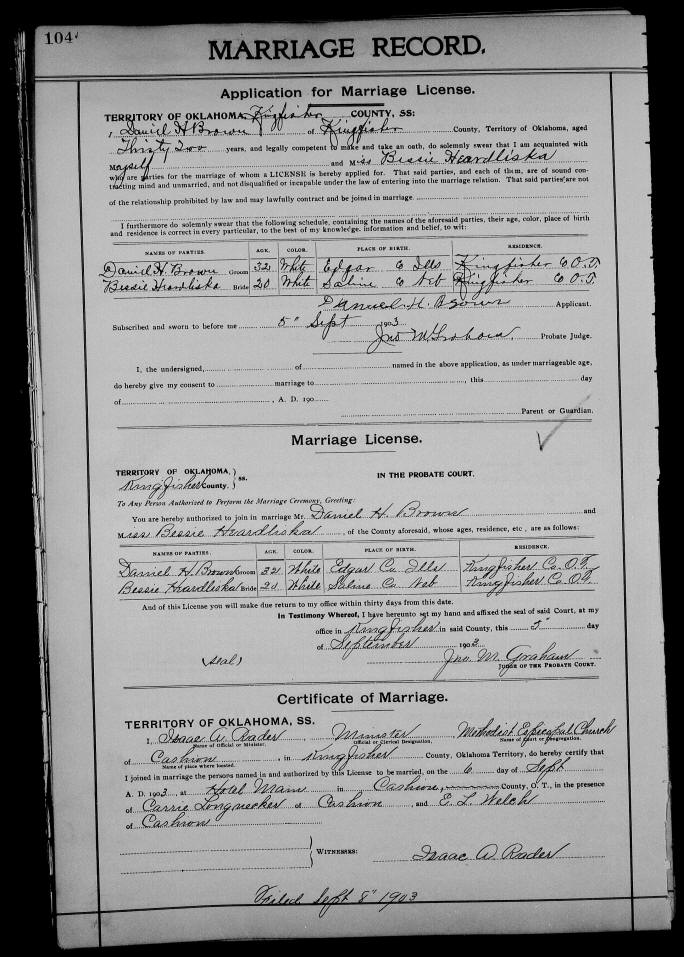 104
MARRIAGE RECORD.
Application for Marriage License.
TERRITORY OF OKLAHOMA, Kingfisher COUNTY, SS:
I, Daniel H Brown of Kingfisher County, Territory of Oklahoma, aged
Thirty Two years, and legally competent to make and take an oath, do solemnly swear that I am acquainted with
M myself and Miss Bessie Heardliska
who are parties for the marriage of whom a LICENSE is hereby applied for. That said parties, and each of them, are of sound con-
tracting mind and unmarried, and not disqualified or incapable under the law of entering into the marriage relation. That said parties are not
of the relationship prohibited by law and may lawfully contract and be joined in marriage.
I furthermore do solemnly swear that the following schedule, containing the names of the aforesaid parties, their age, color, place of birth
and residence is correct in every particular, to the best of my knowledge, information and belief, to wit:
NAMES OF PARTIES. AGE. COLOR. PLACE OF BIRTH. RESIDENCE.
Daniel H. Brown Groom 32 White Edgar C Ills Kingfisher C O.T.
Bessie Heardliska Bride 20 White Saline C Neb Kingfisher C O.T.
Daniel H. Brown Applicant.
Subscribed and sworn to before me 5" Sept 1903
Jno M Graham, Probate Judge.
I, the undersigned, of named in the above application, as under marriageable age,
do hereby give my consent to marriage to , this day
of , A. D. 190
Parent or Guardian.
Marriage License.
TERRITORY OF OKLAHOMA, } ss.
Kingfisher County. IN THE PROBATE COURT.
To Any Person Authorized to Perform the Marriage Ceremony, Greeting:
You are hereby authorized to join in marriage Mr. Daniel H. Brown and
Miss Bessie Heardliska , of the County aforesaid, whose ages, residence, etc., are as follows:
NAMES OF PARTIES. AGE. COLOR. PLACE OF BIRTH. RESIDENCE.
Daniel H. Brown Groom 32 White Edgar Co. Ills Kingfisher Co. O.T.
Bessie Heardliska Bride 20 White Saline Co Neb Kingfisher Co. O.T.
And of this License you will make due return to my office within thirty days from this date.
In Testimony Whereof, I have hereunto set my hand and affixed the seal of said Court, at my
office in Kingfisher in said County, this 5" day
of September 1903
(seal) Jno. M. Graham
JUDGE OF THE PROBATE COURT.
Certificate of Marriage.
TERRITORY OF OKLAHOMA, SS.
I, Isaac A. Rader , Minister Methodist Episcopal Church
Name of Official or Minister. Official or Clerical Designation, Name of Court or Congregation.
of Cashion , in Kingfisher County, Oklahoma Territory, do hereby certify that
Name of place where located.
I joined in marriage the persons named in and authorized by this License to be married, on the 6 day of Sept
A. D. 1903, at Hotel Main in Cashion, County, O. T., in the presence
of Carrie Longnecker of Cashion , and E. L. Welch
of Cashion
WITNESSES: Isaac A. Rader
Filed Sept 8" 1903